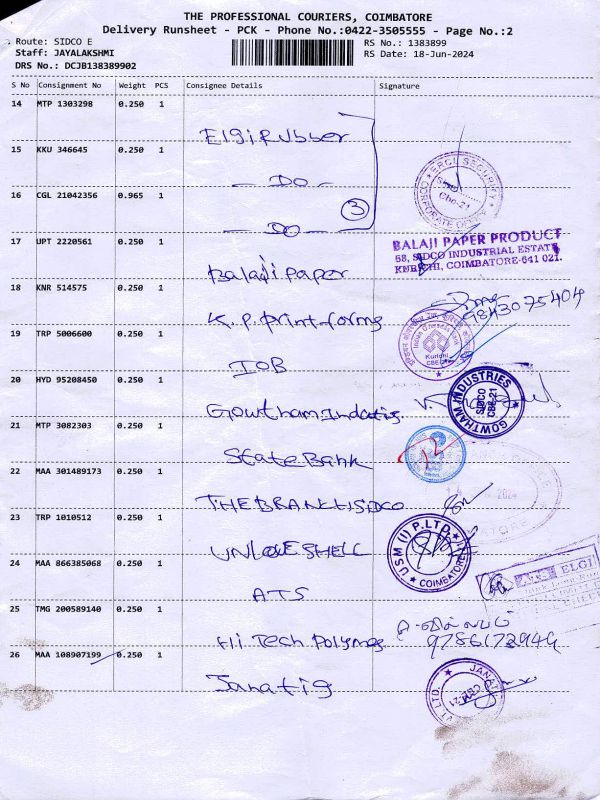 THE PROFESSIONAL COURIERS, COIMBATORE
Delivery Runsheet - PCK - Phone No.:0422-3505555 - Page No.:2
Route: SIDCO E
RS No.: 1383899
Staff: JAYALAKSHMI
RS Date: 18-Jun-2024
DRS No.: DCJB138389902
S No Consignment No Weight PCS Consignee Details Signature
14 MTP 1303298 0.250 1 Elgi Rubber
15 KKU 346645 0.250 1 - DO -
16 CGL 21042356 0.965 1 - DO - 3
17 UPT 2220561 0.250 1 Balaji Paper
BALAJI PAPER PRODUCT
58, SIDCO INDUSTRIAL ESTATE
KURICHI, COIMBATORE-641 021.
18 KNR 514575 0.250 1 K.P. Print forms
9843075404
19 TRP 5006600 0.250 1 IOB
Kurichi
20 HYD 95208450 0.250 1 Gowtham
GOWTHAM INDUSTRIES
SIDCO
CBE-21
21 MTP 3082303 0.250 1 State Bank
22 MAA 301489173 0.250 1 THE BRANCH SIDCO
23 TRP 1010512 0.250 1 SHELL
USM (I) P.LTD.
COIMBATORE
24 MAA 866385068 0.250 1 ATS
ELGI
25 TMG 200589140 0.250 1 Hi Tech Polymes
9786172944
26 MAA 108907199 0.250 1 Janatig